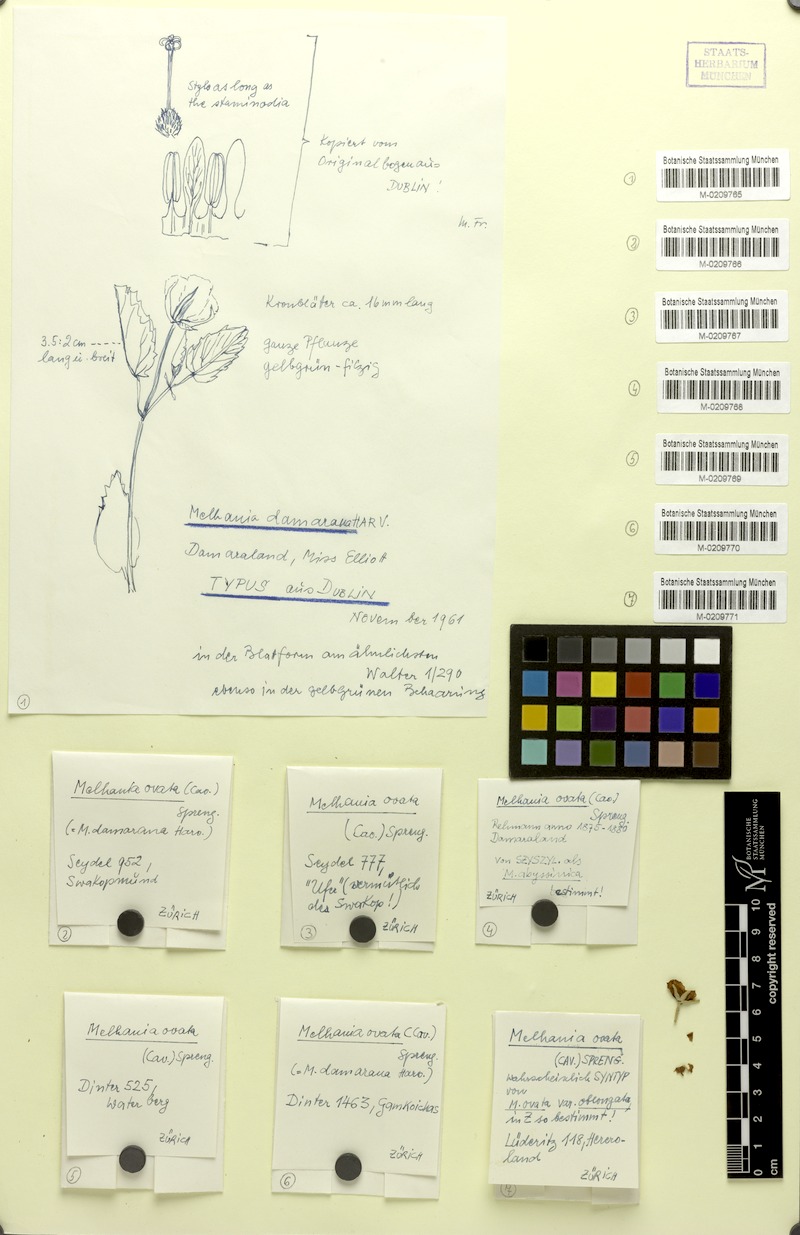 STAATS-
HERBARIUM
MÜNCHEN
Style as long as
the staminodia
Kopiert vom
Originalbogen aus
DUBLIN!
M. Fr.
Kronbläter ca. 16 mm lang
3.5:2 cm
lang u. breit
ganze Pflanze
gelbgrün-filzig
Melhania damarana HARV.
Damaraland, Miss Elliott
TYPUS aus DUBLIN
November 1961
in der Blattform am ähnlichsten
Walter 1/290
ebenso in der gelbgrünen Behaarung
1
1
Botanische Staatssammlung München
M-0209765
2
Botanische Staatssammlung München
M-0209766
3
Botanische Staatssammlung München
M-0209767
4
Botanische Staatssammlung München
M-0209768
5
Botanische Staatssammlung München
M-0209769
6
Botanische Staatssammlung München
M-0209770
7
Botanische Staatssammlung München
M-0209771
Melhania ovata (Cav.)
Spreng.
(= M. damarana Harv.)
Seydel 952,
Swakopmund
ZÜRICH
2
Melhania ovata
(Cav.) Spreng.
Seydel 777,
"Ufer" (vermutlich
des Swakop!)
ZÜRICH
3
Melhania ovata (Cav.)
Spreng.
Rehmann anno 1875-1880
Damaraland
von SZYSZYL. als
M. abyssinica
bestimmt!
ZÜRICH
4
Melhania ovata
(Cav.) Spreng.
Dinter 525,
Waterberg
ZÜRICH
5
Melhania ovata (Cav.)
Spreng.
(= M. damarana Harv.)
Dinter 1463, Gamkoichas
ZÜRICH
6
Melhania ovata
(CAV.) SPRENG.
Wahrscheinlich SYNTYP
von
M. ovata var. oblongata,
in Z so bestimmt!
Lüderitz 118, Herero-
land
ZÜRICH
7
BOTANISCHE
STAATSSAMMLUNG
MÜNCHEN
M
copyright reserved
0 1 2 3 4 5 6 7 8 9 10
cm